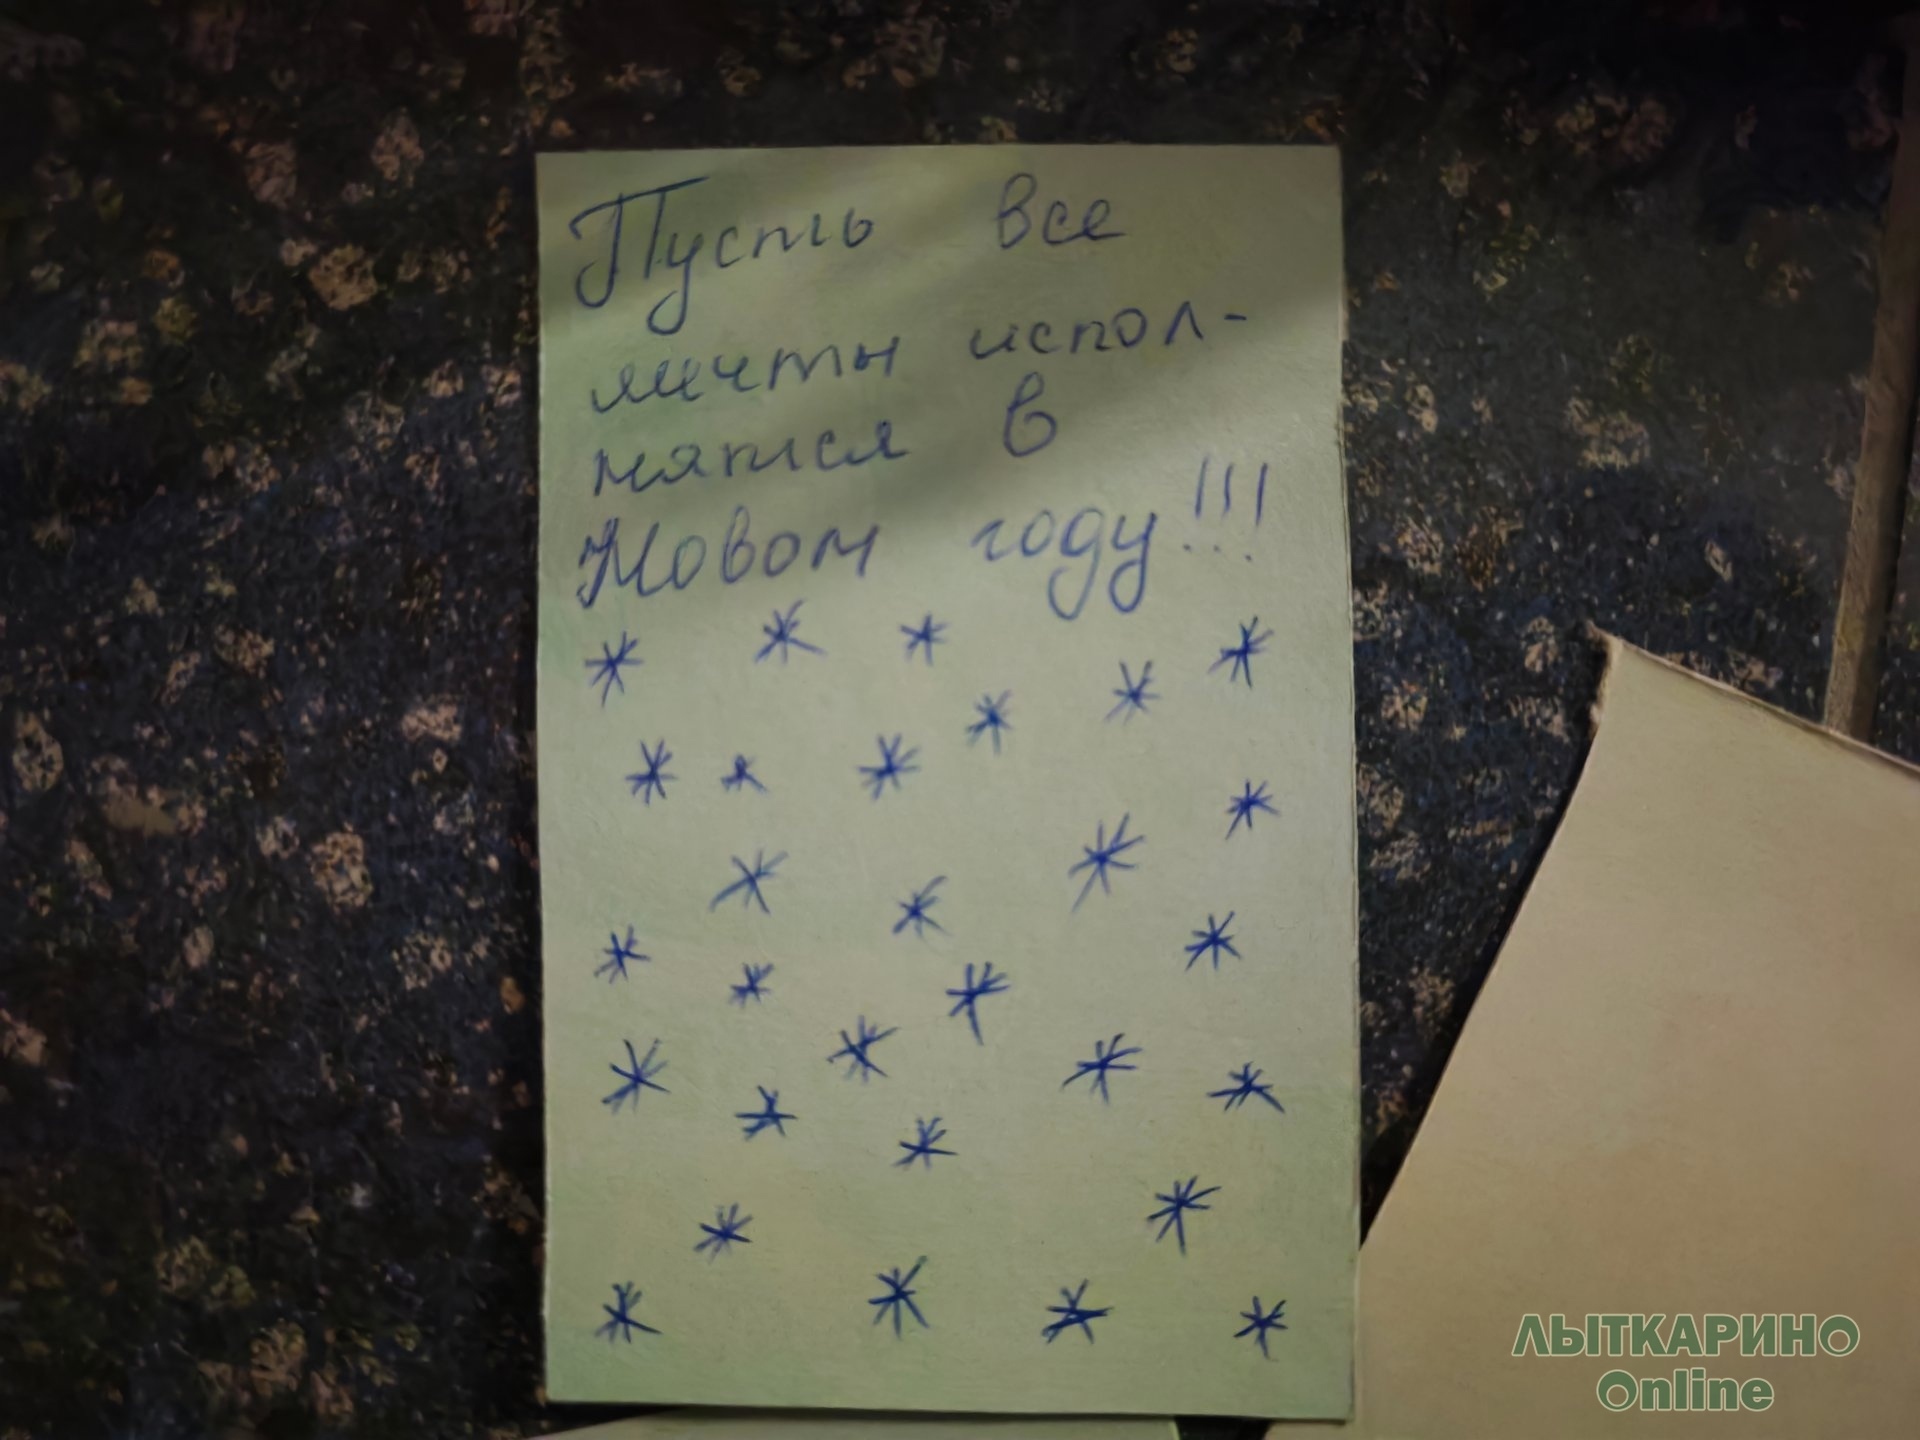 Пусть все
мечты испол-
нятся в
Новом году!!!
ЛЫТКАРИНО
Online